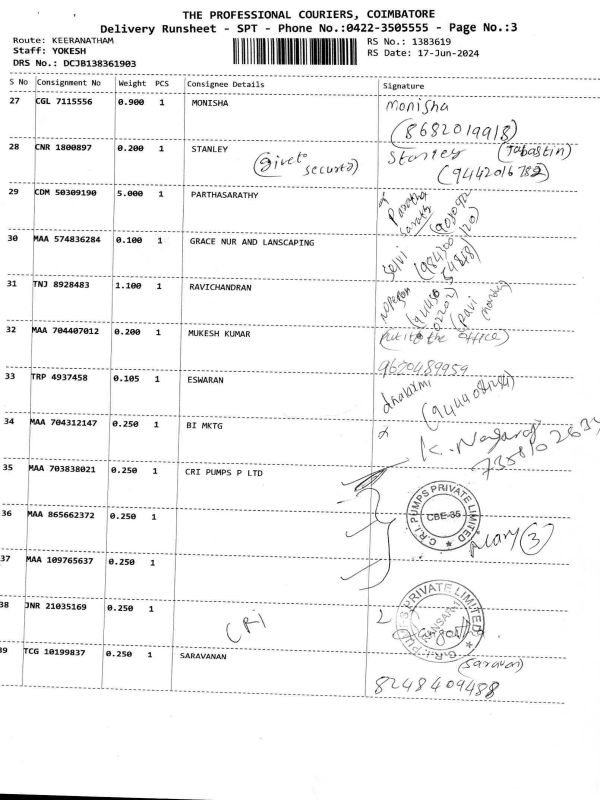 THE PROFESSIONAL COURIERS, COIMBATORE
Delivery Runsheet - SPT - Phone No.:0422-3505555 - Page No.:3
Route: KEERANATHAM RS No.: 1383619
Staff: YOKESH RS Date: 17-Jun-2024
DRS No.: DCJB138361903
S No Consignment No Weight PCS Consignee Details Signature
27 CGL 7115556 0.900 1 MONISHA Monisha
(8682019918)
28 CNR 1800897 0.200 1 STANLEY Stanley
(9442016782)
29 CDM 50309190 5.000 1 PARTHASARATHY
30 MAA 574836284 0.100 1 GRACE NUR AND LANSCAPING Selvi
31 TNJ 8928483 1.100 1 RAVICHANDRAN
32 MAA 704407012 0.200 1 MUKESH KUMAR (Put to the office)
9620489959
33 TRP 4937458 0.105 1 ESWARAN
34 MAA 704312147 0.250 1 BI MKTG
35 MAA 703838021 0.250 1 CRI PUMPS P LTD
C.R.I. PUMPS PRIVATE LIMITED
CBE-35
36 MAA 865662372 0.250 1
(3)
37 MAA 109765637 0.250 1
38 JNR 21035169 0.250 1 CRI
39 TCG 10199837 0.250 1 SARAVANAN (Saravan)
8248409488